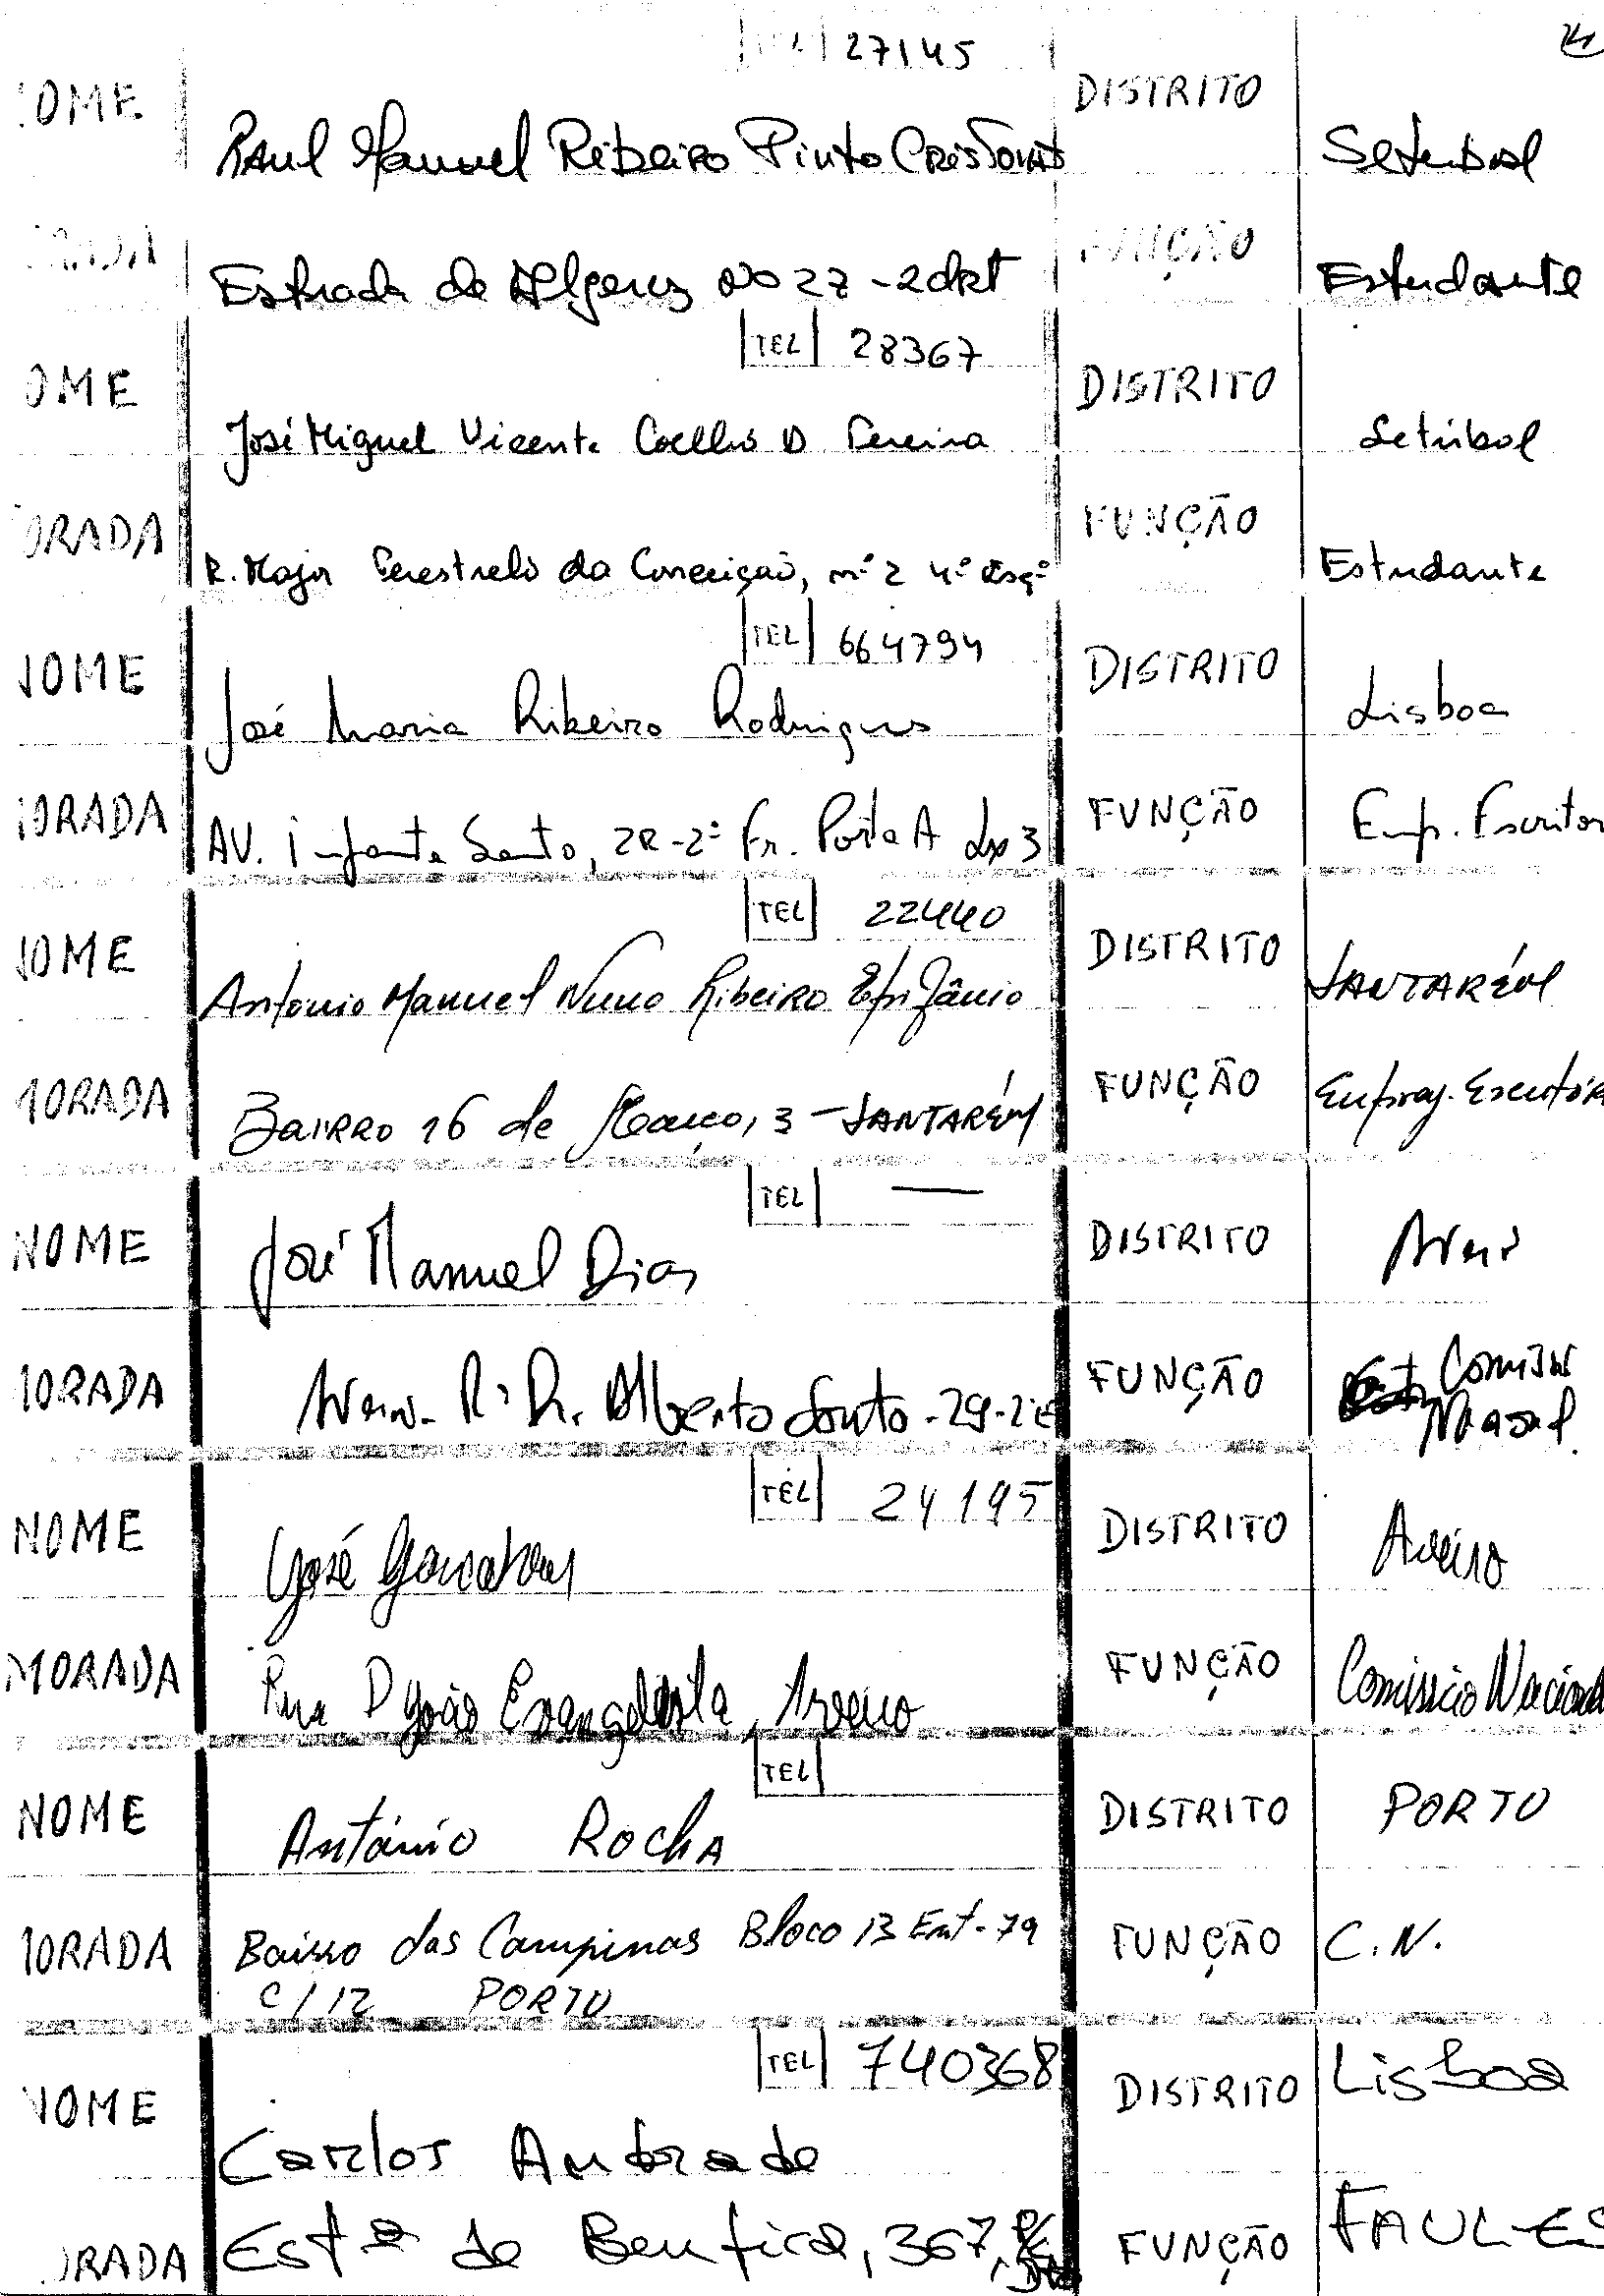 TEL 27145
NOME Raul Manuel Ribeiro Pinto Cristovão DISTRITO Setubal
MORADA Estrada de Algeruz no 27 - 2 drt FUNÇÃO Estudante
TEL 28367
NOME José Miguel Vicente Coelho D Pereira DISTRITO Setúbal
MORADA R. Major Perestrelo da Conceição, nº 2 4º Esqº FUNÇÃO Estudante
TEL 664794
NOME José Maria Ribeiro Rodrigues DISTRITO Lisboa
MORADA AV. Infante Santo, 2R-2º Fr. Porta A Lx 3 FUNÇÃO Emp. Escritor
TEL 22440
NOME António Manuel Nuno Ribeiro Epifânio DISTRITO SANTARÉM
MORADA BAIRRO 16 de Março, 3 - SANTARÉM FUNÇÃO Empreg. Escritór
TEL —
NOME José Manuel Dias DISTRITO Aveiro
MORADA Aveiro - Rª Dr. Alberto Souto - 29-2º E FUNÇÃO
TEL 24195
NOME José Goncalves DISTRITO Aveiro
MORADA Rua D João Evangelista, Aveiro FUNÇÃO Comissão Nacional
TEL
NOME António Rocha DISTRITO PORTO
MORADA Bairro das Campinas Bloco 13 Ent - 79 FUNÇÃO C.N.
C/12 PORTO
TEL 740368
NOME Carlos Andrade DISTRITO Lisboa
MORADA Estª de Benfica, 367, FUNÇÃO FAUL-ES